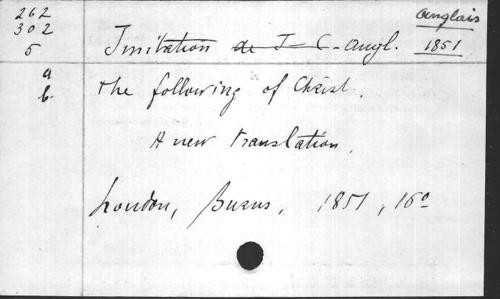 262
302
5
a
b.
Anglais
1851
Imitation de J-C-Angl.
The following of Christ.
A new translation.
London, Burns, 1851, 16º